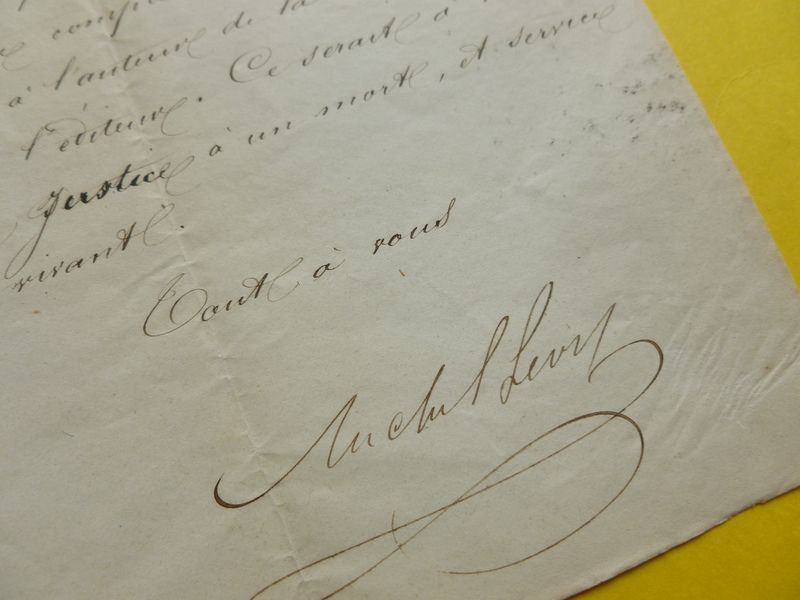 compte
à l'auteur de la
l'éditeur. Ce serait à
Justice à un mort, et service
vivant.
Tout à vous
Michel Lévy